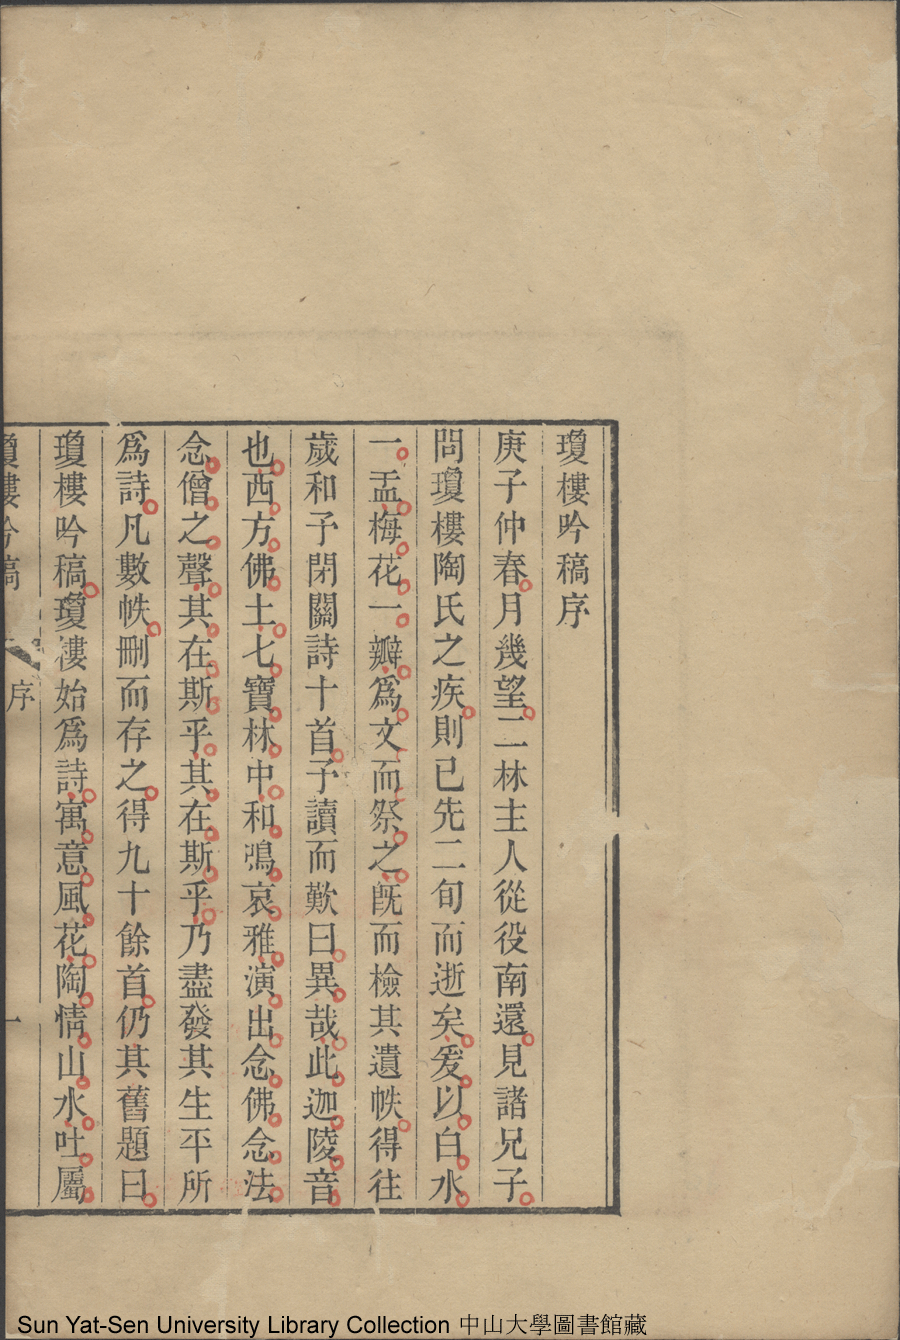 瓊樓吟稿序
庚子仲春月幾望二林主人從役南還見諸兄子
問瓊樓陶氏之疾則已先二旬而逝矣爰以白水
一盂梅花一瓣爲文而祭之旣而檢其遺帙得往
歲和予閉關詩十首予讀而歎曰異哉此迦陵音
也西方佛土七寶林中和鳴哀雅演出念佛念法
念僧之聲其在斯乎其在斯乎乃盡發其生平所
爲詩凡數帙刪而存之得九十餘首仍其舊題曰
瓊樓吟稿瓊樓始爲詩寓意風花陶情山水吐屬
瓊樓吟稿 序 一
Sun Yat-Sen University Library Collection 中山大學圖書館藏